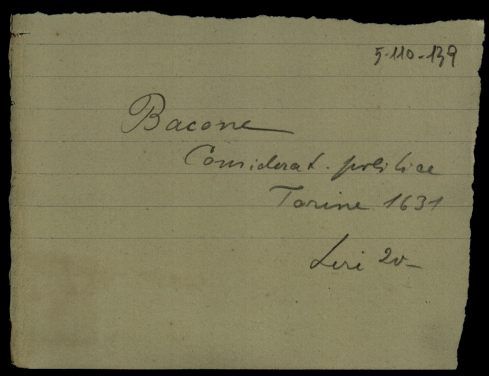 5-110-139
Bacone
Considerat. politice
Torine 1631
Leri 20-